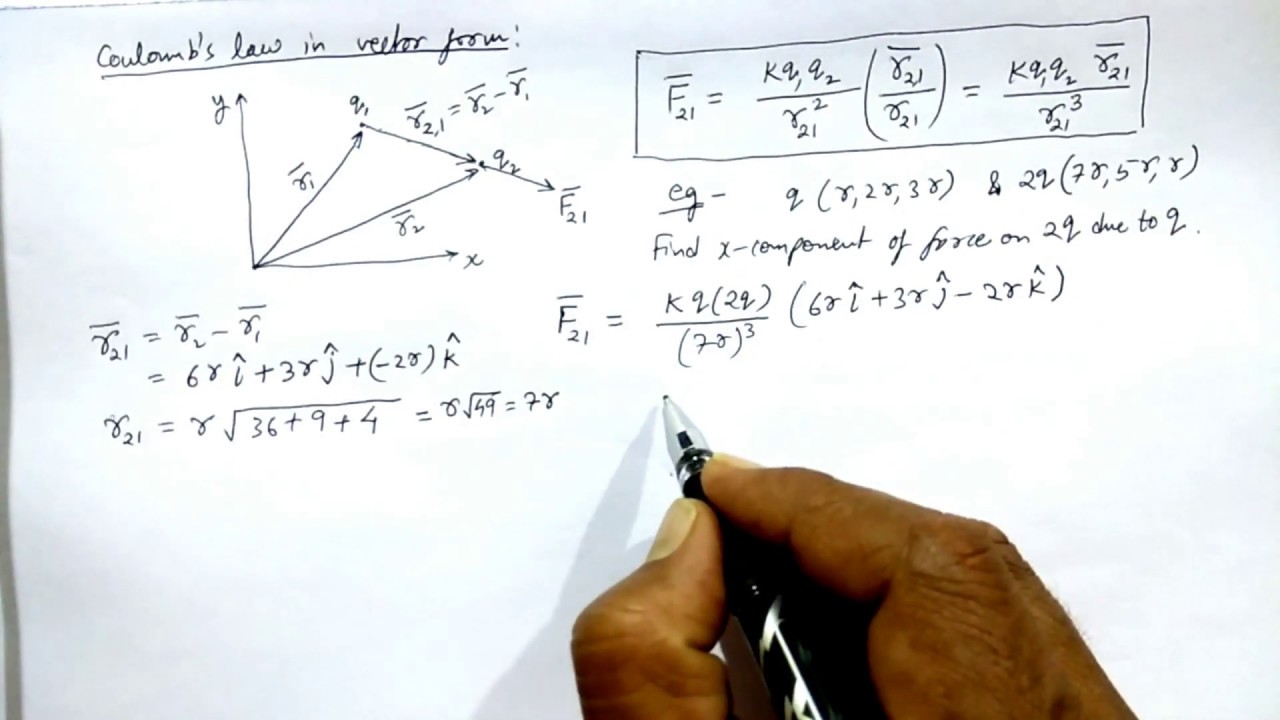 Coulomb's law in vector form:
y
q₁
r̅₂,₁ = r̅₂ - r̅₁
q₂
r̅₁
r̅₂
F̅₂₁
x
F̅₂₁ = Kq₁q₂/r₂₁² (r̅₂₁/r₂₁) = Kq₁q₂ r̅₂₁/r₂₁³
eg - q (r, 2r, 3r) & 2q (7r, 5r, r)
Find x-component of force on 2q due to q.
r̅₂₁ = r̅₂ - r̅₁
= 6r î + 3r ĵ + (-2r) k̂
r₂₁ = r √(36 + 9 + 4) = r√49 = 7r
F̅₂₁ = K q(2q)/(7r)³ (6r î + 3r ĵ - 2r k̂)